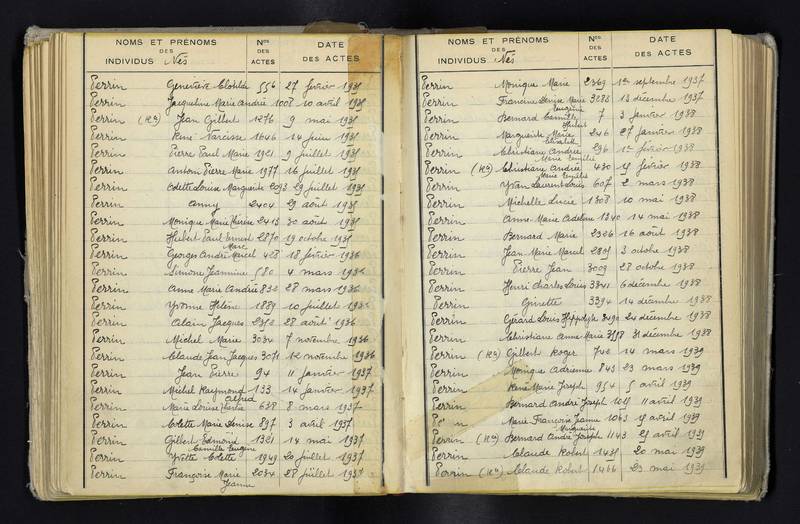 NOMS ET PRÉNOMS
DES
INDIVIDUS Nés
Nos
DES
ACTES
DATE
DES ACTES
Perrin Geneviève Clotilde 556 27 février 1935
Perrin Jacqueline Marie Andrée 1008 10 avril 1935
Perrin Jean Gilbert 1276 9 mai 1935
Perrin René Narcisse 1646 14 juin 1935
Perrin Pierre Paul Marie 1921 9 juillet 1935
Perrin Antoine Pierre Marie 1977 16 juillet 1935
Perrin Odette Louise Marguerite 2093 29 juillet 1935
Perrin Anny 2404 29 août 1935
Perrin Monique Marie Thérèse 2413 30 août 1935
Perrin Hubert Paul Ernest 2870 19 octobre 1935
Marc
Perrin Georges André Marcel 428 18 février 1936
Perrin Simone Jeannine 580 4 mars 1936
Perrin Anne Marie Andrée 832 28 mars 1936
Perrin Yvonne Hélène 1889 10 juillet 1936
Perrin Alain Jacques 2350 28 août 1936
Perrin Michel Marie 3034 7 novembre 1936
Perrin Claude Jean Jacques 3071 12 novembre 1936
Perrin Jean Pierre 94 11 janvier 1937
Perrin Michel Raymond 133 14 janvier 1937
Alfred
Perrin Marie Louise 638 8 mars 1937
Perrin Colette Marie Denise 897 3 avril 1937
Perrin Gilbert Edmond 1321 14 mai 1937
Camille Eugène
Perrin Yvette Colette 1949 20 juillet 1937
Perrin Françoise Marie 2034 28 juillet 1937
Jeanne
NOMS ET PRÉNOMS
DES
INDIVIDUS Nés
Nos
DES
ACTES
DATE
DES ACTES
Perrin Monique Marie 2369 1er septembre 1937
Perrin Francine Denise Marie 3288 13 décembre 1937
Eugénie
Perrin Bernard Camille 7 3 janvier 1938
Hubert
Perrin Marguerite Marie 246 27 janvier 1938
Elisabeth
Perrin Christiane Andrée 296 1er février 1938
Marie Emilie
Perrin Christiane Andrée 430 février 1938
Marie Emilie
Perrin Yvan Laurent Louis 607 2 mars 1938
Perrin Michelle Lucie 1308 10 mai 1938
Perrin Anne Marie Adeline 1340 14 mai 1938
Perrin Bernard Marie 2326 16 août 1938
Perrin Jean Marie Marcel 3 octobre 1938
Perrin Pierre Jean 3009 28 octobre 1938
Perrin Henri Charles Louis 3341 6 décembre 1938
Perrin Ginette 3394 14 décembre 1938
Perrin Gérard Louis Hippolyte 3490 24 décembre 1938
Perrin Christiane Anne Marie 31 décembre 1938
Perrin Gilbert Roger 740 14 mars 1939
Perrin Monique Adrienne 843 23 mars 1939
Perrin René Marie Joseph 954 5 avril 1939
Perrin Bernard André Joseph 11 avril 1939
Marie Françoise Jeanne 1063 avril 1939
Marguerite
Perrin Bernard André Joseph 1143 avril 1939
Perrin Claude Robert 20 mai 1939
Perrin Claude Robert 1466 23 mai 1939